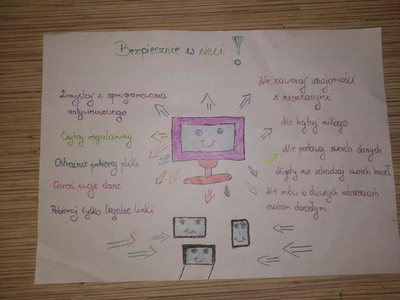 Bezpiecznie w sieci!
Korzystaj z oprogramowania
antywirusowego
Czytaj regulaminy
Ostrożnie pobieraj pliki
Chroń swoje dane
Pobieraj tylko legalne linki
Nie zawieraj znajomości
z nieznanymi
Nie hejtuj nikogo
Nie podawaj swoich danych
Nigdy nie zdradzaj swoich haseł
Nie mów o dziwnych zdarzeniach
osobom dorosłym.